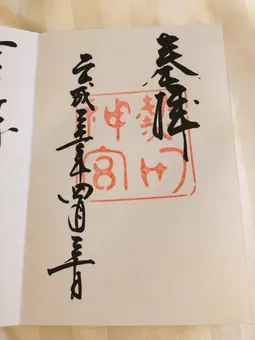 奉拝
熱田
神宮
平成三十一年四月三十日